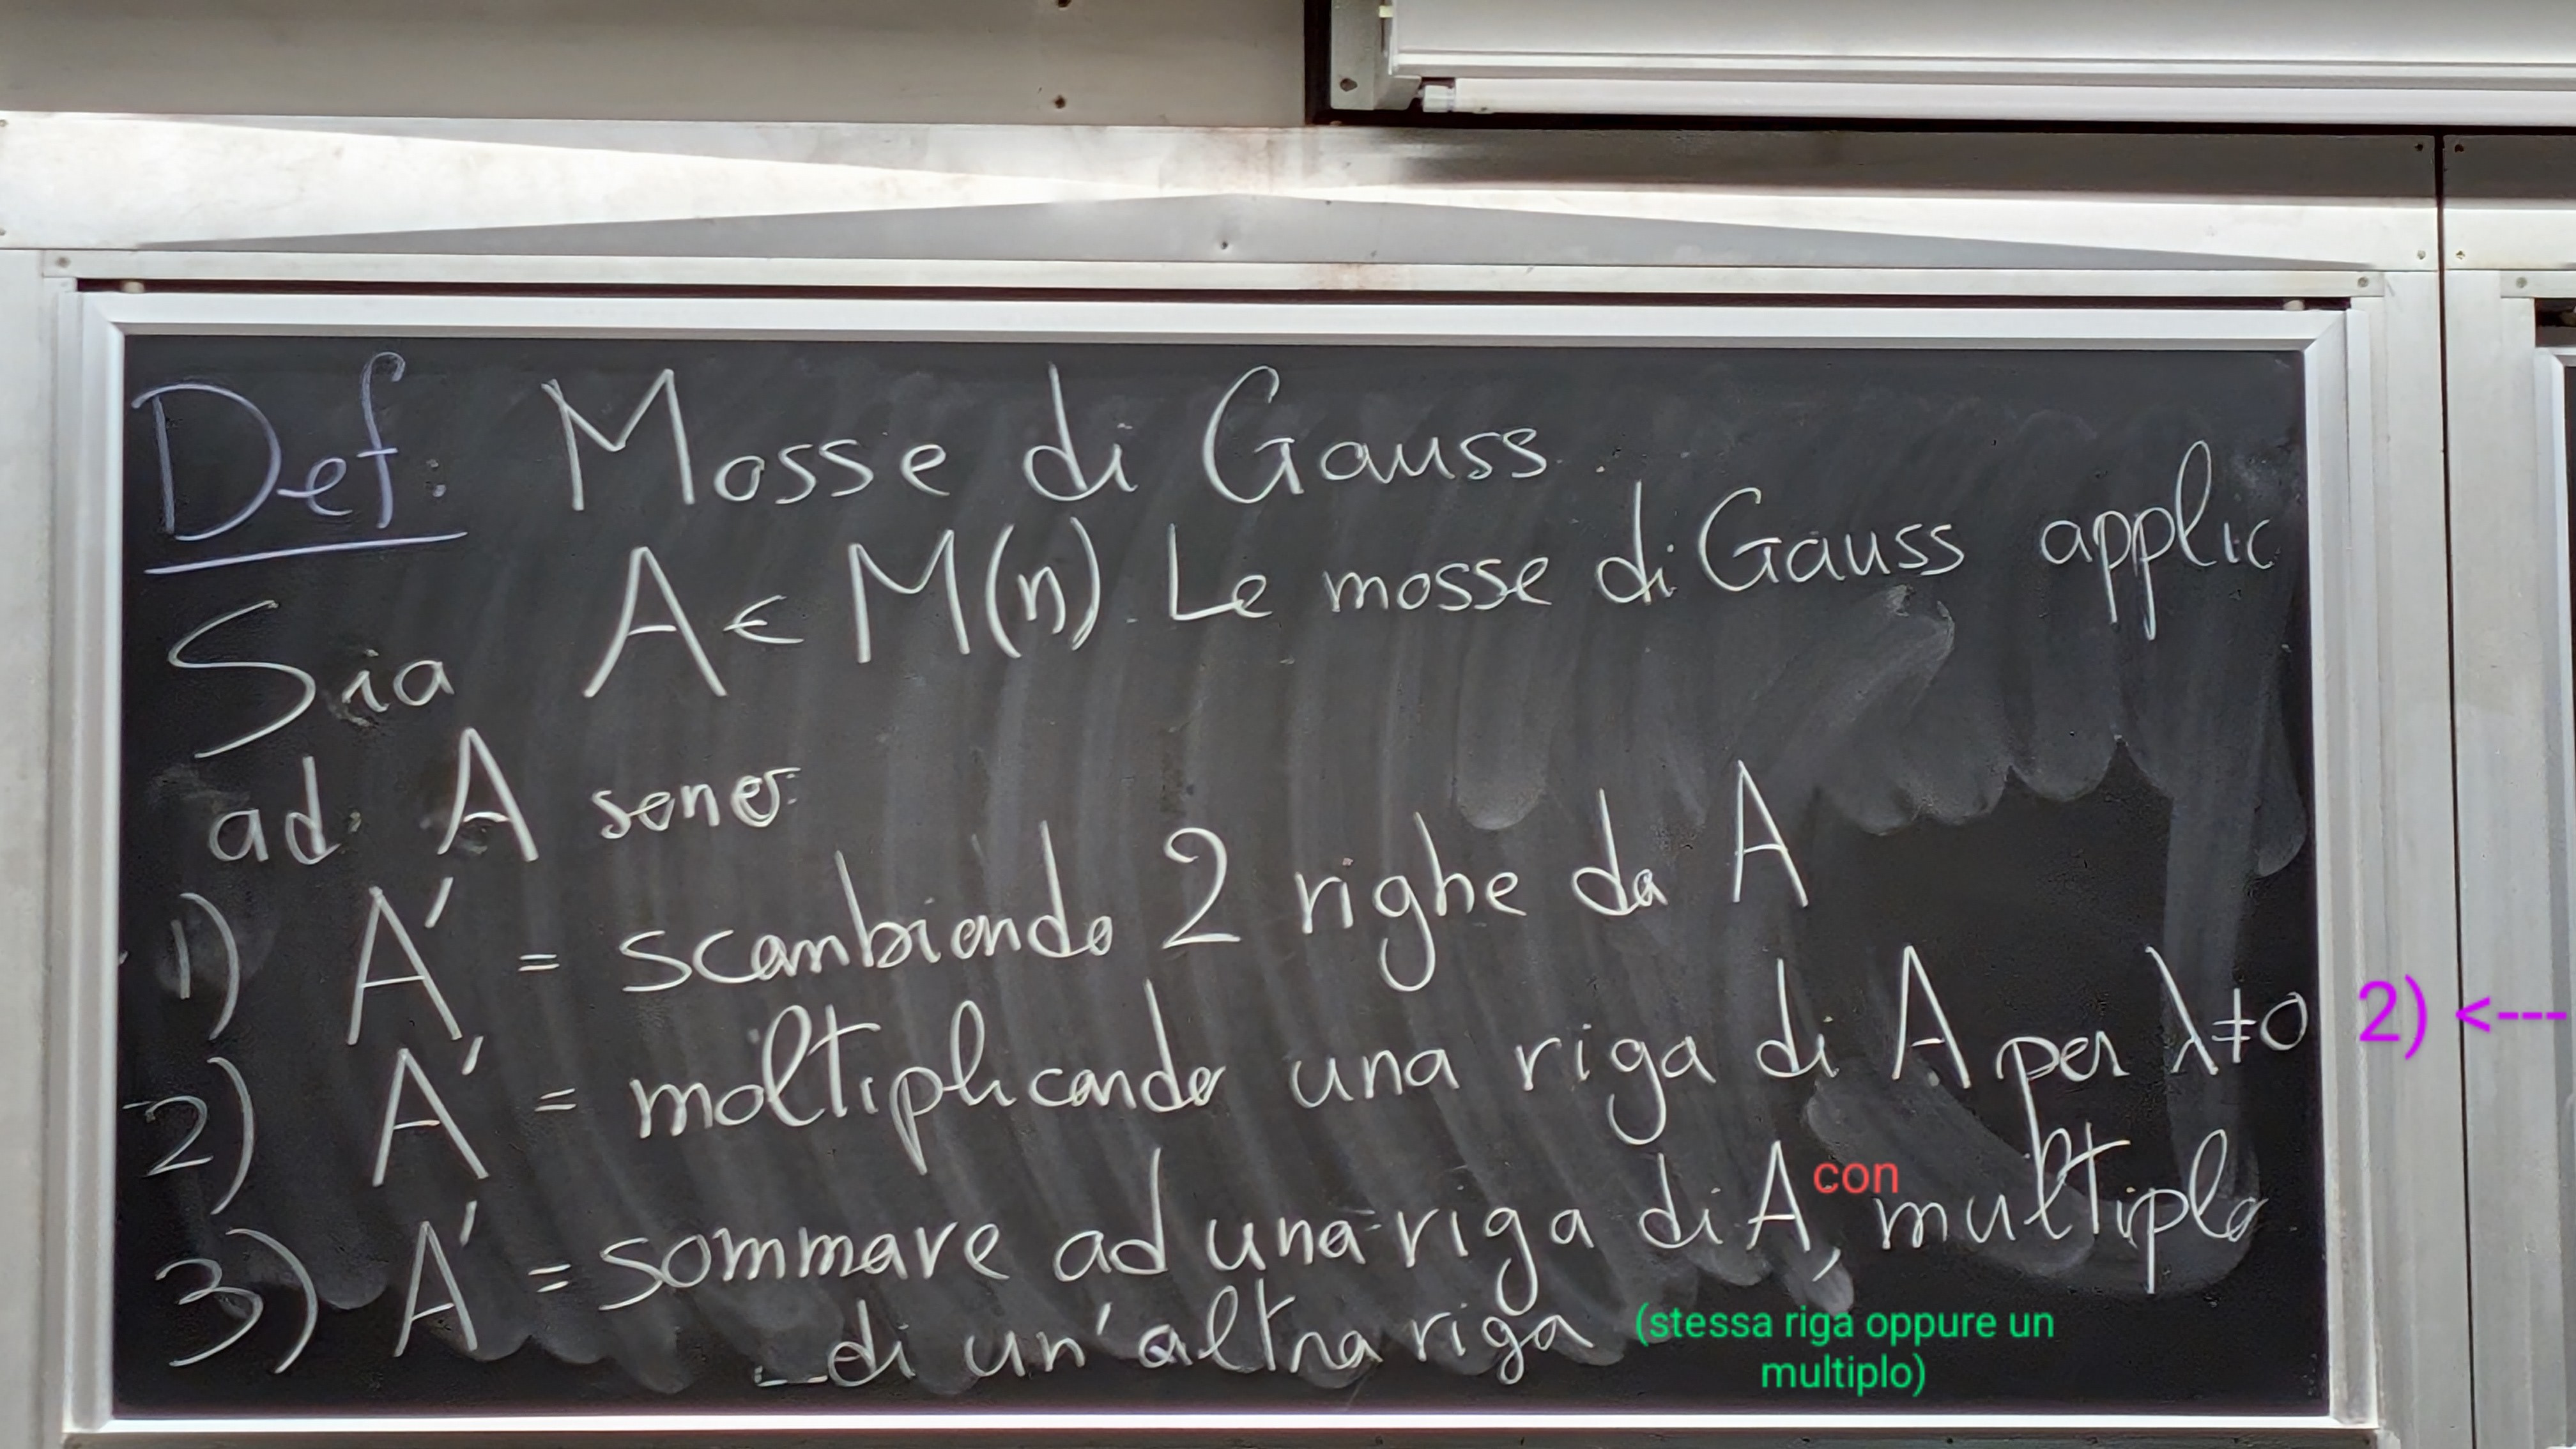 Def: Mosse di Gauss
Sia A ∈ M(n). Le mosse di Gauss applic
ad A sono:
1) A' = scambiando 2 righe da A
2) A' = moltiplicando una riga di A per λ≠0 2) <---
3) A' = sommare ad una riga di A, con multiplo
di un'altra riga (stessa riga oppure un
multiplo)